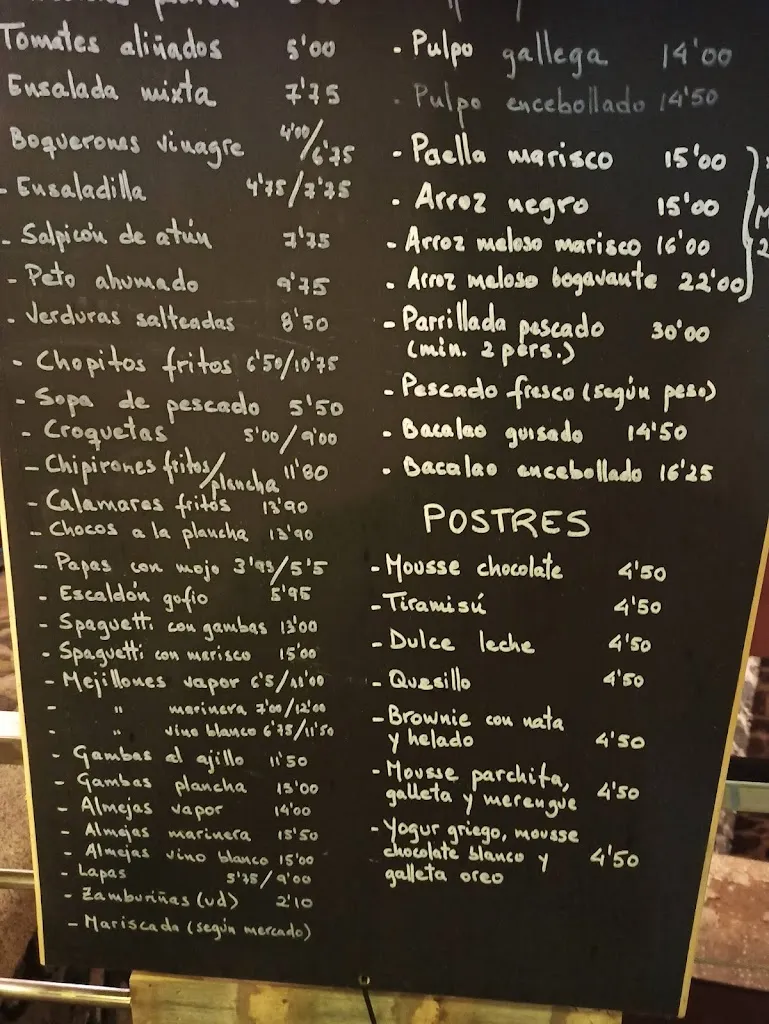 Tomates aliñados 5'00
Ensalada mixta 7'75
Boquerones vinagre 4'00/6'75
- Ensaladilla 4'75/7'75
- Salpicón de atún 7'75
- Peto ahumado 9'75
- Verduras salteadas 8'50
- Chopitos fritos 6'50/10'75
- Sopa de pescado 5'50
- Croquetas 5'00/9'00
- Chipirones fritos/plancha 11'80
- Calamares fritos 13'90
- Chocos a la plancha 13'90
- Papas con mojo 3'95/5'5
- Escaldón gofio 5'95
- Spaguetti con gambas 13'00
- Spaguetti con marisco 15'00
- Mejillones vapor 6'5/11'00
- " marinera 7'00/12'00
- " vino blanco 6'75/11'50
- Gambas al ajillo 11'50
- Gambas plancha 15'00
- Almejas vapor 14'00
- Almejas marinera 15'50
- Almejas vino blanco 15'00
- Lapas 5'75/9'00
- Zamburiñas (ud) 2'10
- Mariscada (según mercado)
- Pulpo gallega 14'00
- Pulpo encebollado 14'50
- Paella marisco 15'00
- Arroz negro 15'00
- Arroz meloso marisco 16'00
- Arroz meloso bogavante 22'00
- Parrillada pescado 30'00
(min. 2 pers.)
- Pescado fresco (según peso)
- Bacalao guisado 14'50
- Bacalao encebollado 16'25
POSTRES
- Mousse chocolate 4'50
- Tiramisú 4'50
- Dulce leche 4'50
- Quesillo 4'50
- Brownie con nata
y helado 4'50
- Mousse parchita,
galleta y merengue 4'50
- Yogur griego, mousse
chocolate blanco y 4'50
galleta oreo